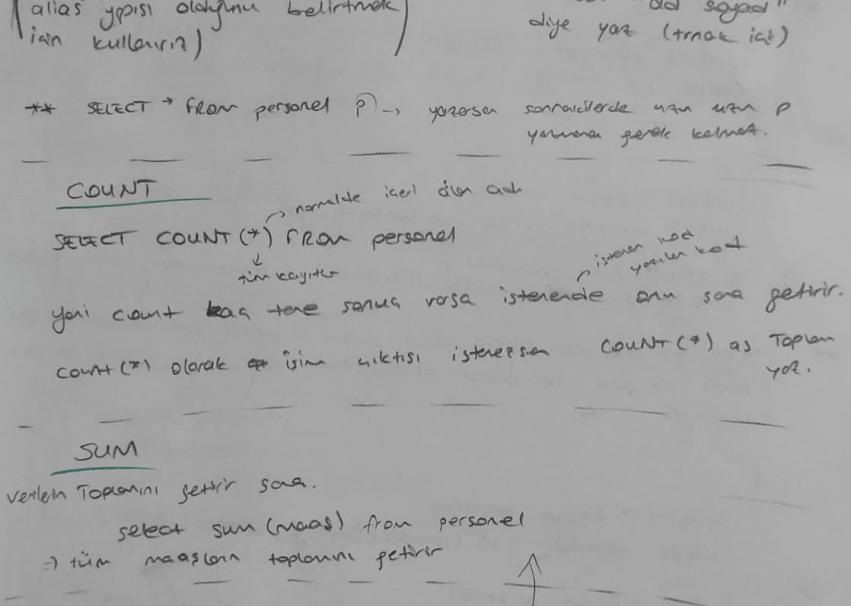 alias yapısı olduğunu belirtmek
için kullanırız)
"ad soyad"
diye yaz (tırnak içi)
** SELECT * FROM personel p → yazarsan sonrakilerde uzun uzun p
yazmana gerek kalmaz.
COUNT
→ normalde içeri
SELECT COUNT(*) FROM personel
↓
tüm kayıtlar
istenen kod
yazılan kod
yani count kaç tane sonuç varsa istenende onu sana getirir.
count(*) olarak isim çıktısı istemezsen COUNT(*) as Toplam
yaz.
SUM
verilerin Toplamını getirir sana.
select sum(maas) from personel
⇒ tüm maaşların toplamını getirir